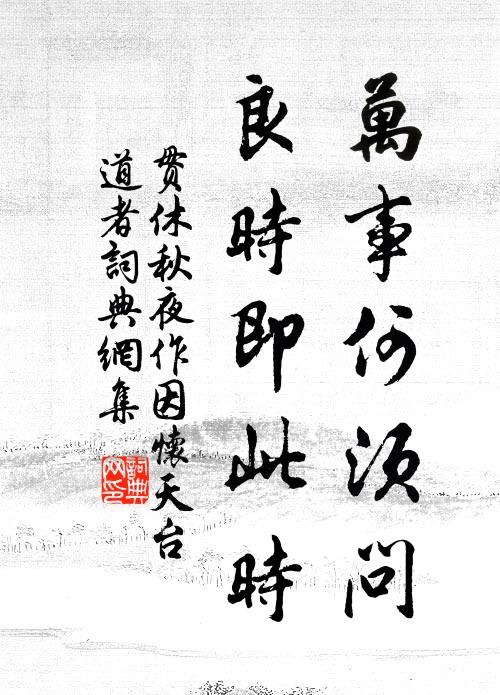 萬事何須問
良時即此時
貫休秋夜作因懷天台
道者詞典網集
詞典
网印